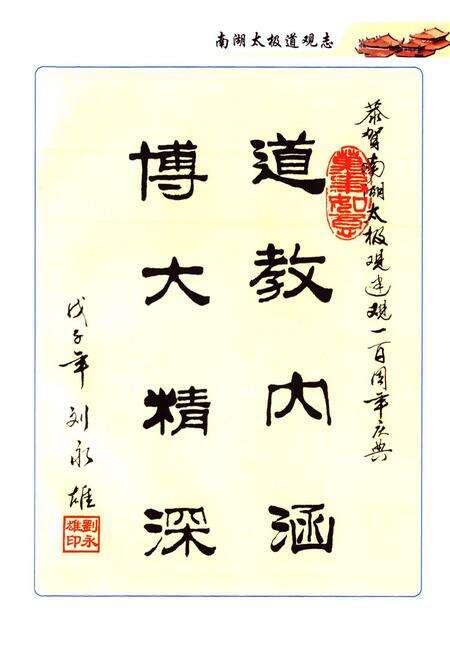 南湖太极道观志
恭贺南湖太极观建观一百周年庆典
道教内涵
博大精深
戊子年 刘永雄
劉永雄印